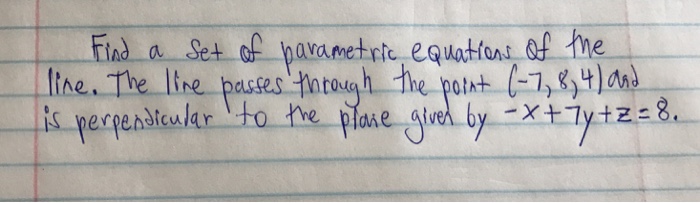 Find a set of parametric equations of the
line. The line passes through the point (-7, 8, 4) and
is perpendicular to the plane given by -x+7y+z=8.